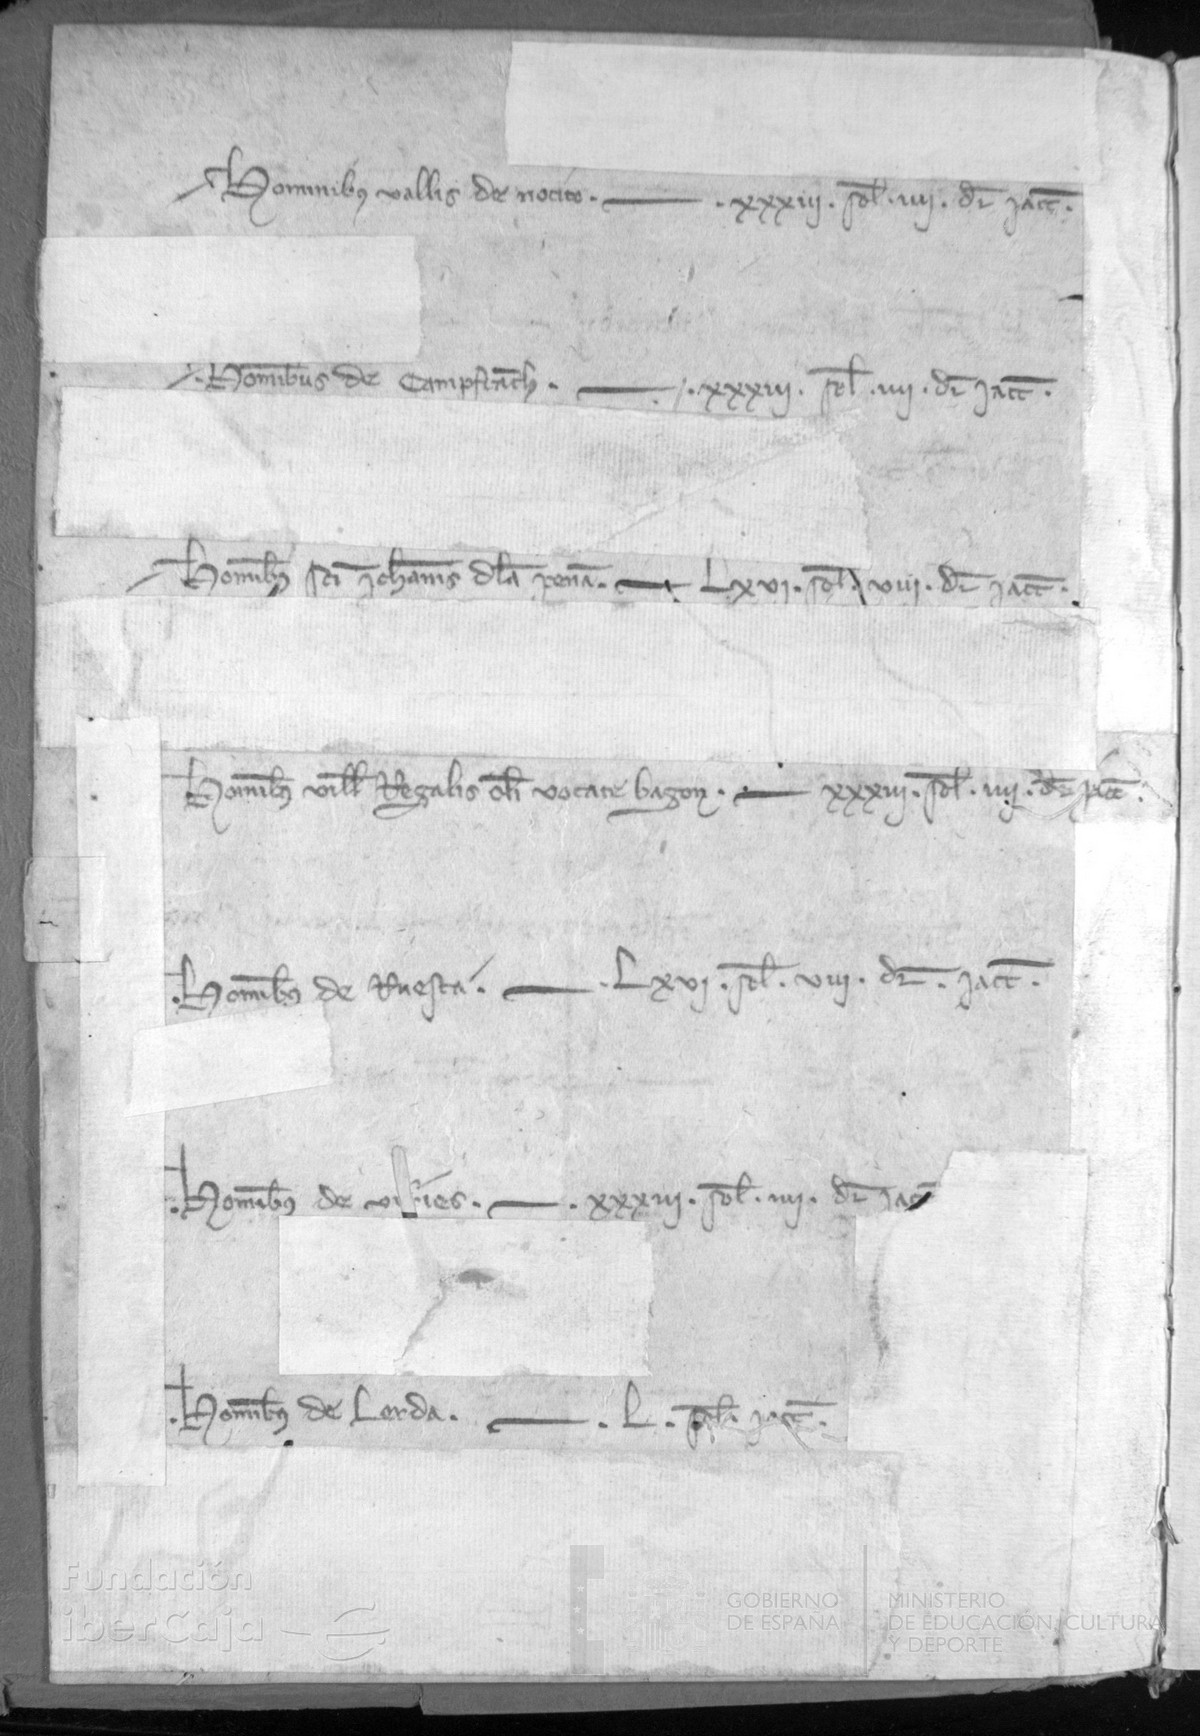 Hominib9 vallis de nocito. — . xxxiij. sol. iiij. dr jacc.
. Hom̄ibus de Campfrāch. — . xxxiij. sol. iiij. dr jacc.
Hom̄ib9 sc̄i Joh̄anis dl̄a penā. — Lxvj. sol. viij. dr jacc.
Hom̄ib9 vill Regalis ol̄i vocate bagon. — xxxiij. sol. iiij. dr jacc.
. Hom̄ib9 de Ruesta. — . Lxvj. sol. viij. dr. jacc.
. Hom̄ib9 de — . xxxiij. sol. iiij. dr jacc
. Hom̄ib9 de Lorda. — . L. sol. jacc.
Fundación
iberCaja
GOBIERNO
DE ESPAÑA
MINISTERIO
DE EDUCACIÓN, CULTURA
Y DEPORTE